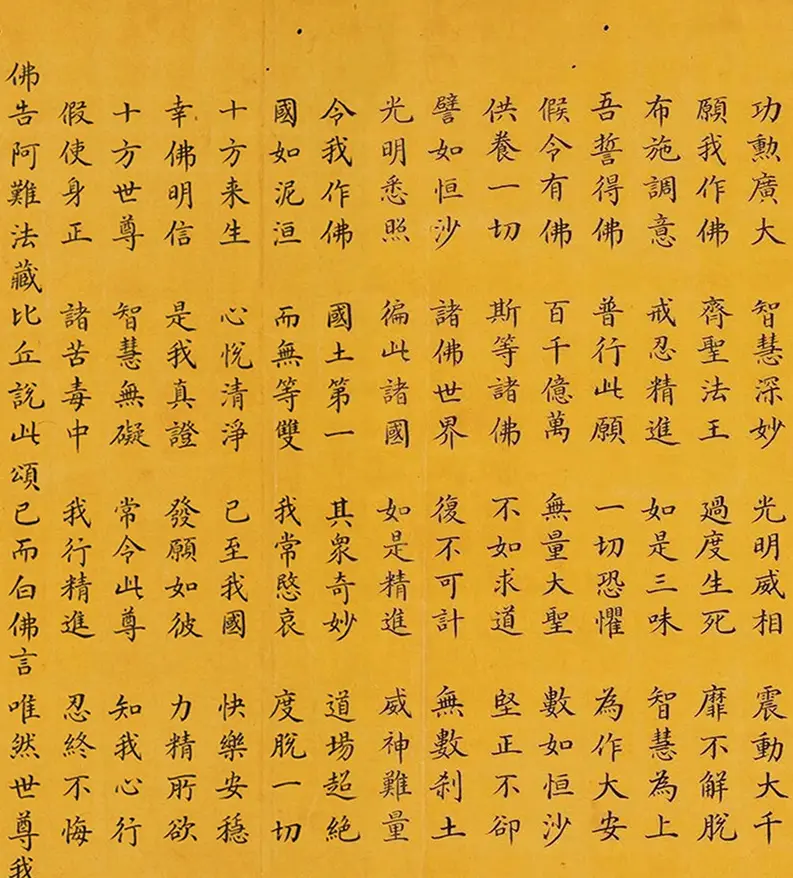 功勳廣大 智慧深妙 光明威相 震動大千
願我作佛 齊聖法王 過度生死 靡不解脫
布施調意 戒忍精進 如是三昧 智慧為上
吾誓得佛 普行此願 一切恐懼 為作大安
假令有佛 百千億萬 無量大聖 數如恒沙
供養一切 斯等諸佛 不如求道 堅正不卻
譬如恒沙 諸佛世界 復不可計 無數剎土
光明悉照 徧此諸國 如是精進 威神難量
令我作佛 國土第一 其眾奇妙 道場超絕
國如泥洹 而無等雙 我常愍哀 度脫一切
十方来生 心悅清淨 已至我國 快樂安穩
幸佛明信 是我真證 發願如彼 力精所欲
十方世尊 智慧無礙 常令此尊 知我心行
假使身正 諸苦毒中 我行精進 忍終不悔
佛告阿難法藏比丘說此頌已而白佛言唯然世尊我